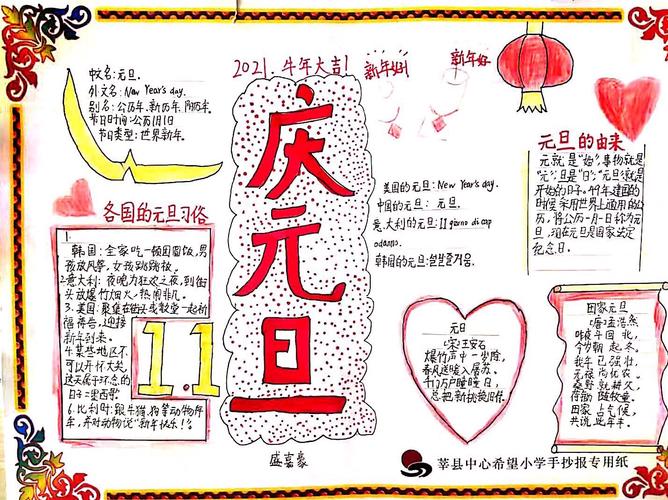 中文名:元旦.
外文名:New Year's day.
别名:公历年.新历年.阳历年.
节日时间:公历1月1日
节日类型:世界新年.
2021.牛年大吉!
新年好!
新年好
庆元旦
元旦的由来
元就是“始”,事物就是
“元”;旦是“日”;“元旦”就是
开始的日子.49年建国的
时候采用世界上通用的公
历,将公历一月一日称为元
旦,现在元旦是国家法定
纪念日.
各国的元旦习俗
1.
韩国:全家吃一顿团圆饭,男
孩放风筝,女孩跳跳板.
2.意大利:夜晚为狂欢之夜,到街
头放爆竹烟火,热闹非凡.
3.美国:聚集在街头或教堂一起祈
福祷告,迎接
新年到来.
4.某些地区不
可以开怀大笑,
这天属于怀念的
日子:墨西哥
6.比利时:跟牛猫,狗等动物拜
年,并对动物说“新年快乐!”.
1.1
美国的元旦:New Year's day.
中国的元旦: 元旦.
意大利的元旦:Il giorno di cap
odanno.
韩国的元旦:
元日
(宋)王安石
爆竹声中一岁除,
春风送暖入屠苏.
千门万户曈曈日,
总把新桃换旧符.
田家元旦
(唐)孟浩然
昨夜斗回北,
今朝岁起东.
我年已强壮,
无禄尚忧农.
桑野就耕父,
荷锄随牧童.
田家占气候,
共说此年丰.
盛嘉豪
莘县中心希望小学手抄报专用纸